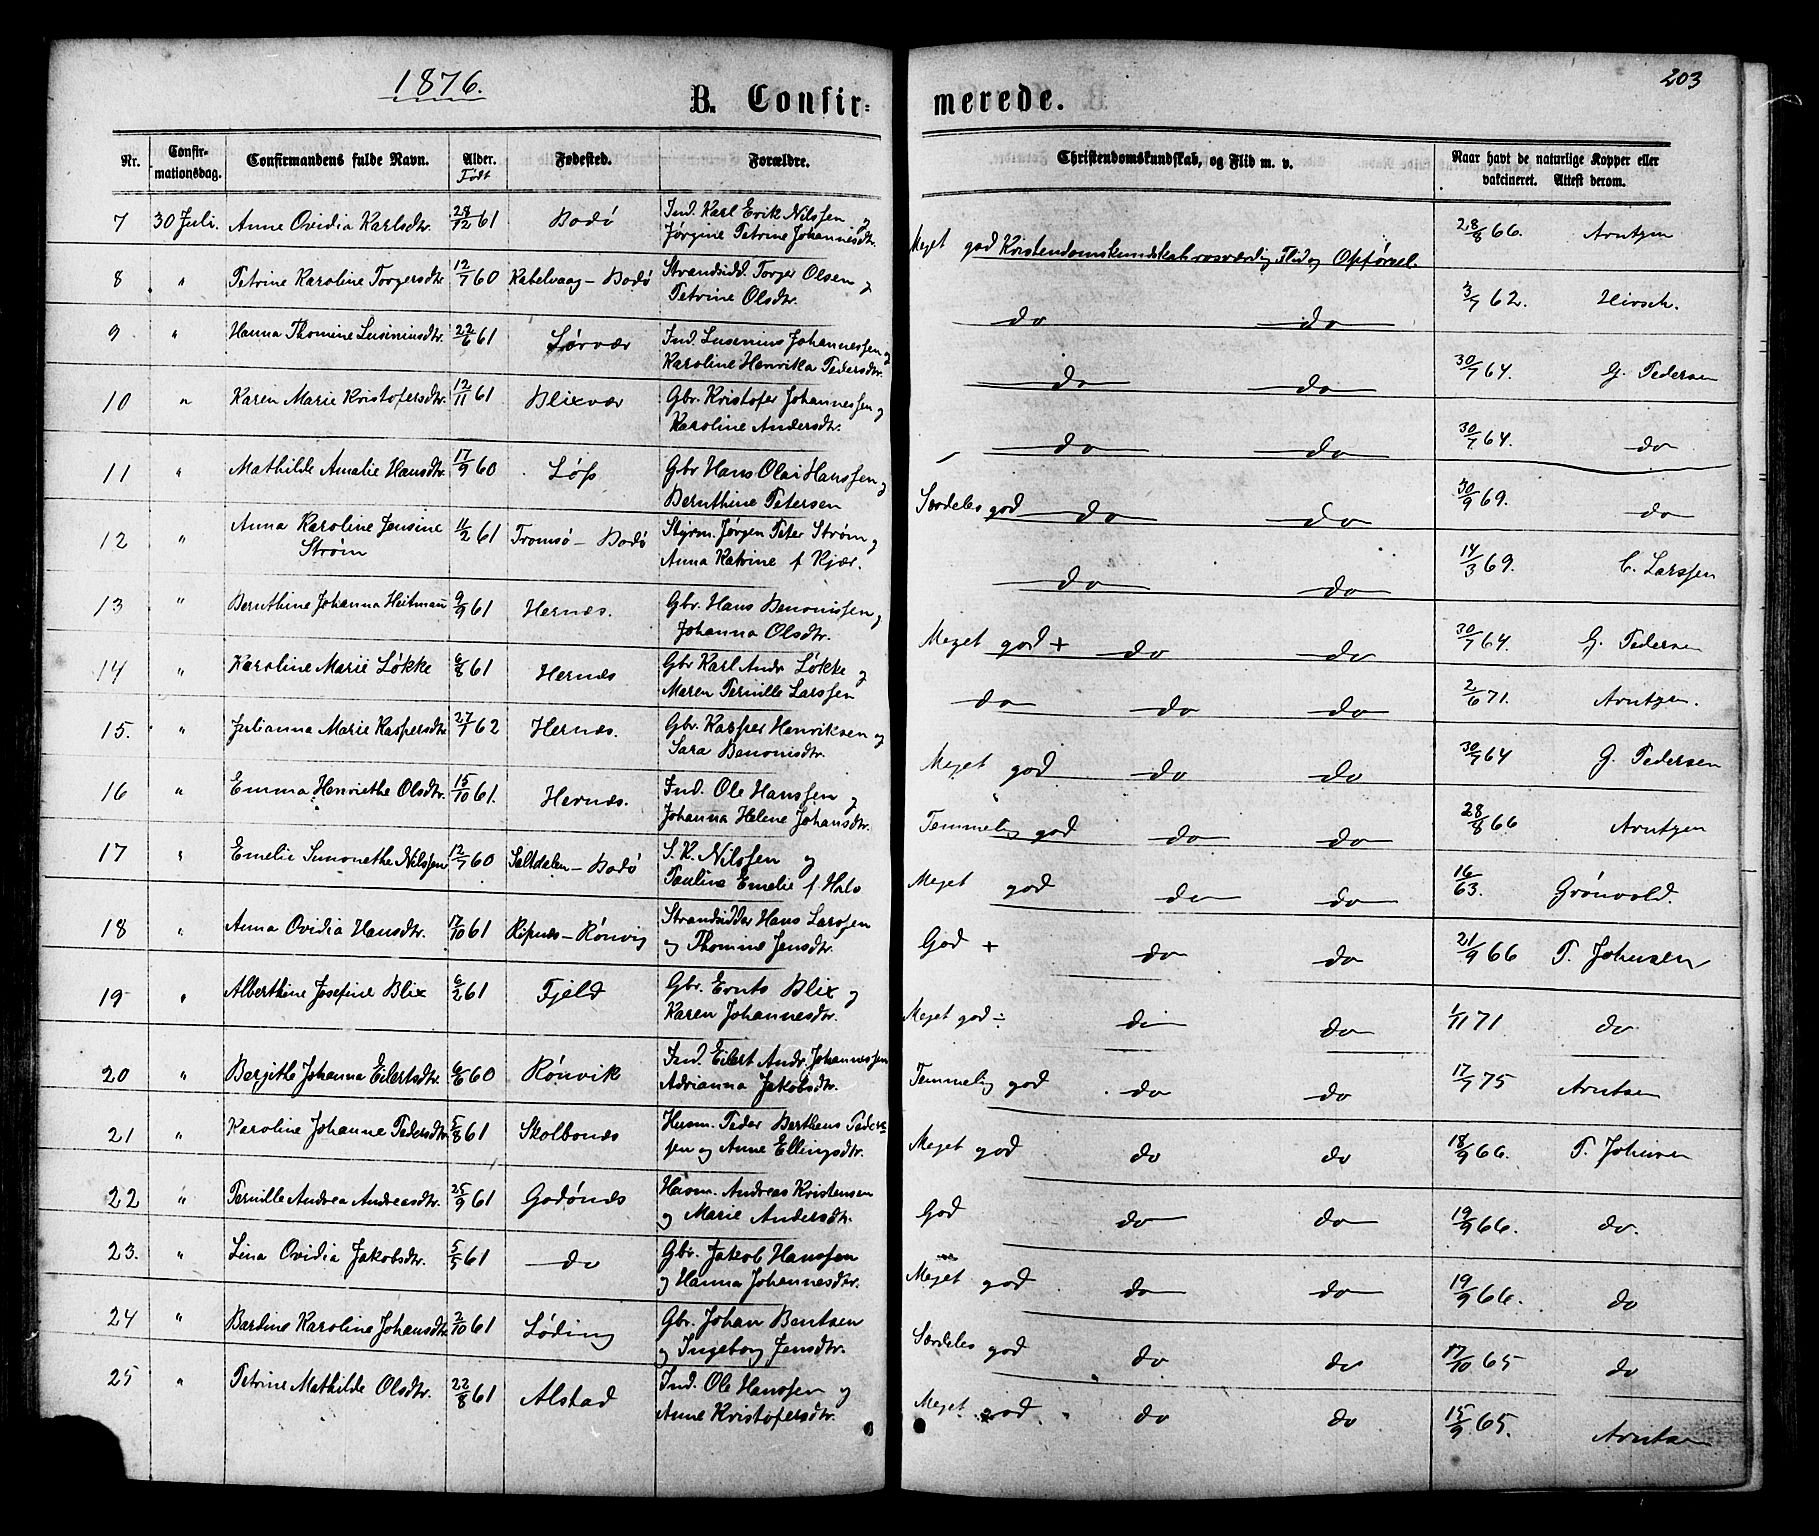 1876.
203
B. Confirmerede.
Nr. Confirmationsdag. Confirmandens fulde Navn. Alder. Født Fødested. Forældre. Christendomskundskab, og Flid m. v. Naar havt de naturlige Kopper eller vakcineret. Attest derom.
7 30 Juli. Anne Ovidia Karlsdtr. 28/12 61 Bodø Ind. Karl Erik Nilssen og
Jørgine Petrine Johannesdtr. Meget god Kristendomskundskab rosværdig Flid og Opførsel. 28/8 66. Arntzen
8 " Petrine Karoline Torgersdtr 12/7 60 Kabelvaag - Bodø Strandsidd. Torger Olsen og
Petrine Olsdtr. do do 3/7 62. Hirsch.
9 " Hanna Thomine Lusiniusdtr. 22/6 61 Sørvær Ind. Lusinius Johannessen og
Karoline Henrika Pedersdtr. do do 30/7 64. G. Pedersen
10 " Karen Marie Kristofersdtr. 12/11 61 Blixvær Gbr. Kristofer Johannessen og
Karoline Andersdtr. do do 30/7 64. do
11 " Mathilde Amalie Hansdtr. 17/9 60 Løp Gbr Hans Olai Hanssen og
Bernthine Petersen Særdeles god do do 30/9 69. do
12 " Anna Karoline Jensine
Strøm 11/2 61 Tromsø - Bodø Styrm. Jørgen Peter Strøm og
Anna Katrine f Kjær. do do 14/3 69. C. Larssen
13 " Bernthine Johanna Heitmann 9/9 61 Hernæs. Gbr. Hans Benonissen og
Johanna Olsdtr. Meget god + do do 30/7 64. G. Pedersen
14 " Karoline Marie Løkke 6/8 61 Hernæs Gbr Karl Andr Løkke og
Maren Pernille Larssen do do do 2/6 71. Arntzen.
15. " Julianna Marie Kaspersdtr 27/7 62 Hernæs. Gbr. Kasper Henriksen og
Sara Benonisdtr. Meget god do do 30/7 64 G. Pedersen
16 " Emma Henriethe Olsdtr. 15/10 61. Hernæs. Ind. Ole Hanssen og
Johanna Helene Johansdtr. Temmelig god do do 28/8 66 Arntzen
17 " Emelie Simonethe Nilssen 12/7 60 Saltdalen - Bodø S. K. Nilssen og
Pauline Emelie f Hals Meget god do do 16/63. Grønvold.
18 " Anna Ovidia Hansdtr. 17/10 61 Ripnæs - Rønvig Strandsidder Hans Larssen
og Thomine Jensdtr. God + do do 21/9 66 T. Johnsen
19 " Alberthine Josefine Blix 6/2 61 Fjeld Gbr. Ernts Blix og
Karen Johannesdtr. Meget god ÷ do do 1/11 71 do
20 " Berjithe Johanna Eilertsdtr. 6/6 60 Rønvik Ind. Eilert Andr. Johannessen
Adrianna Jakobsdtr. Temmelig god do do 17/7 75 Arntsen
21 " Karoline Johanne Pedersdtr 5/8 61 Skolbonæs Husm. Peder Bertheus Peder-
sen og Anne Ellingsdtr. Meget god do do 18/9 66. T. Johnsen
22 " Pernille Andrea Andreasdtr. 25/9 61 Godønæs Husm. Andreas Kristensen
og Marie Andersdtr. God do do 19/9 66. do.
23. " Lina Ovidia Jakobsdtr. 5/5 61 do Gbr. Jakob Hanssen
og Hanna Johannesdtr. Meget god do do 19/9 66. do
24 " Bardine Karoline Johansdtr 2/10 61 Løding Gbr. Johan Bentsen
og Ingeborg Jensdtr. Særdeles god do do 17/10 65 do
25 " Petrine Mathilde Olsdtr. 22/8 61 Alstad Ind. Ole Hanssen og
Anne Kristofersdtr. Meget god do do 15/9 65. Arntsen